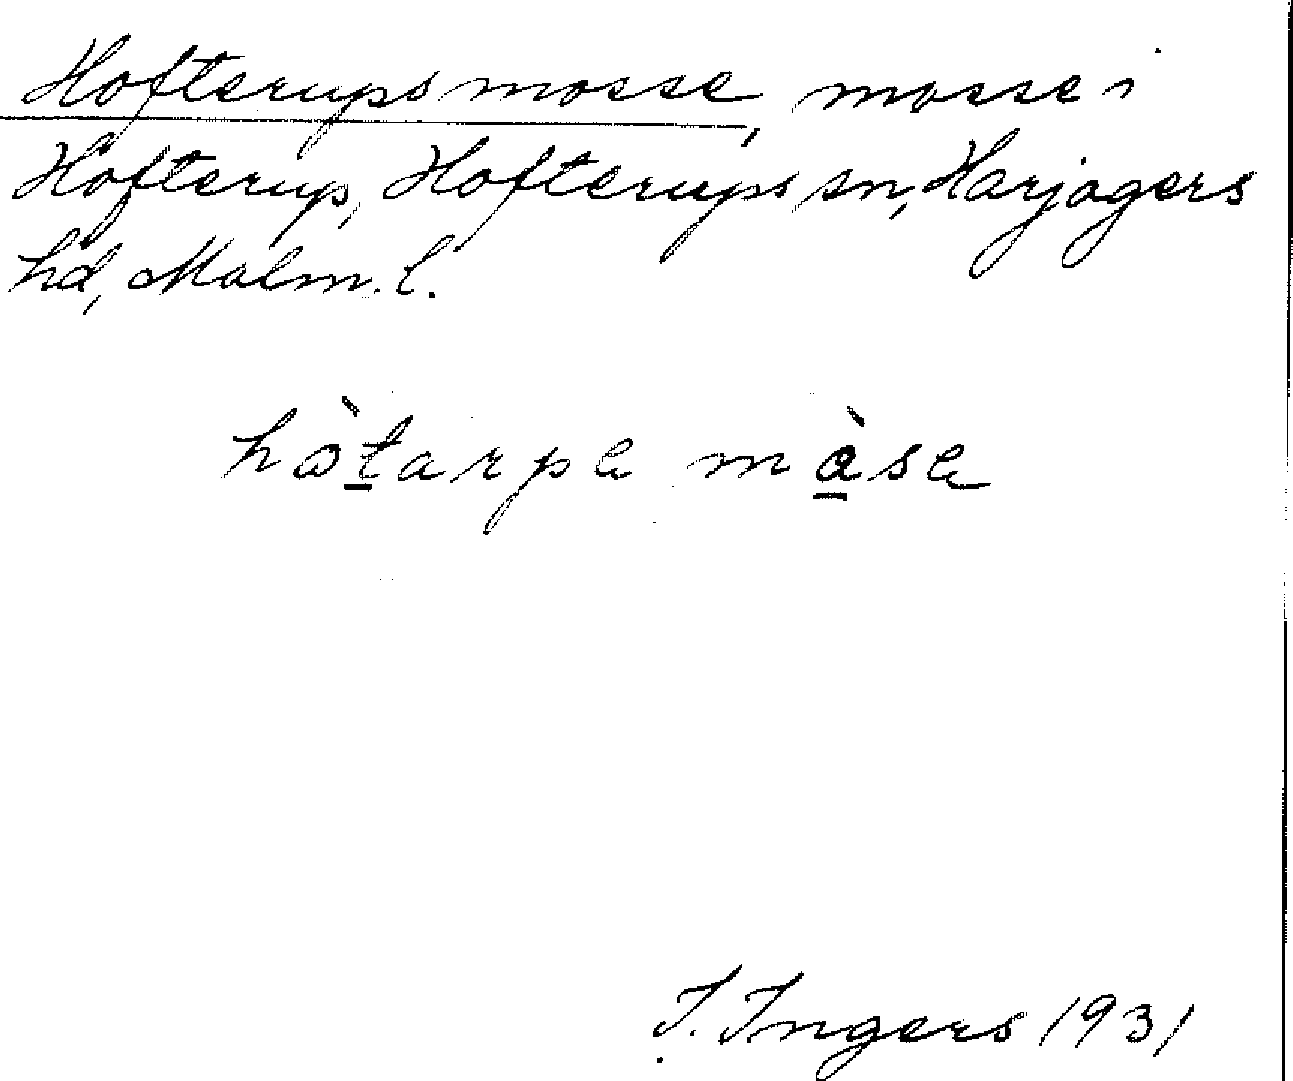 Hofterups mosse, mosse i
Hofterup, Hofterups sn, Harjagers
hd, Malm. l.
hòtarpa màsa
I. Ingers 1931